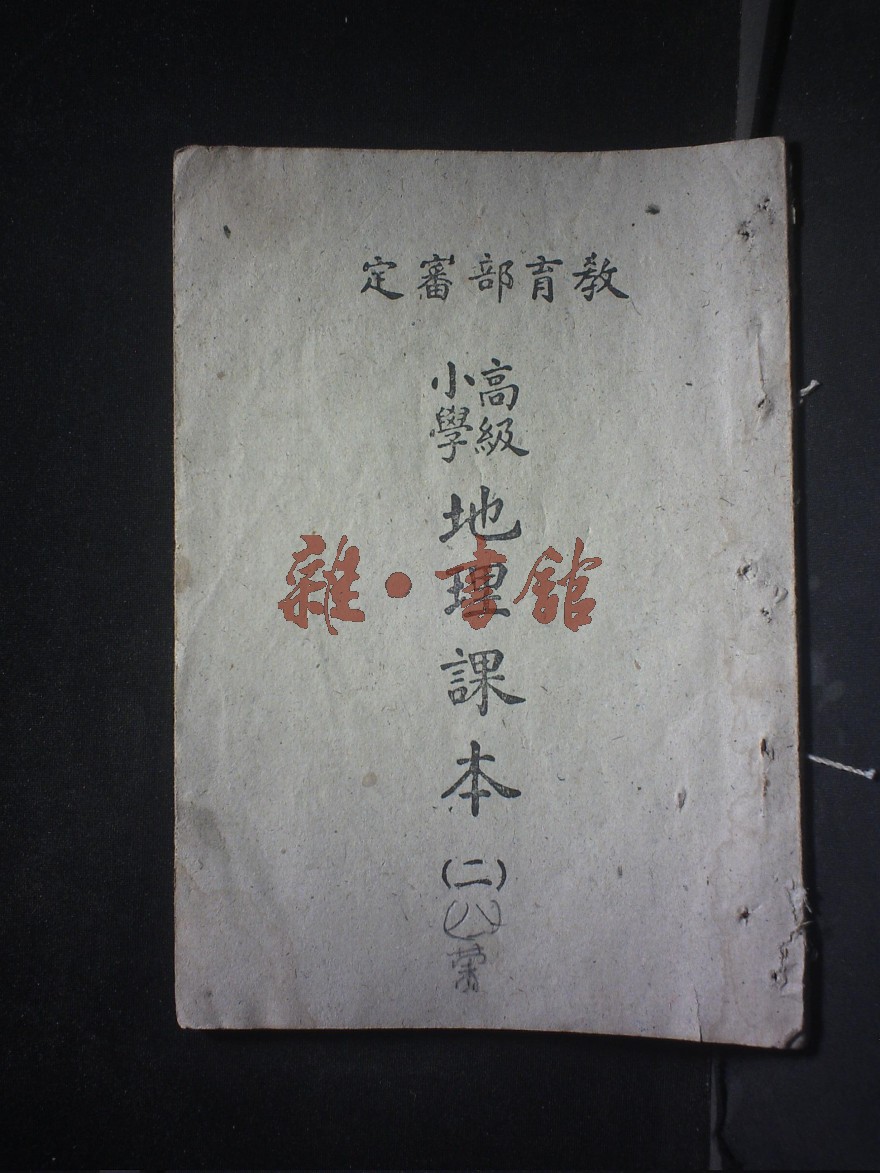 教育部審定
高級
小學
地理課本
(二)
(八)
雜·書館